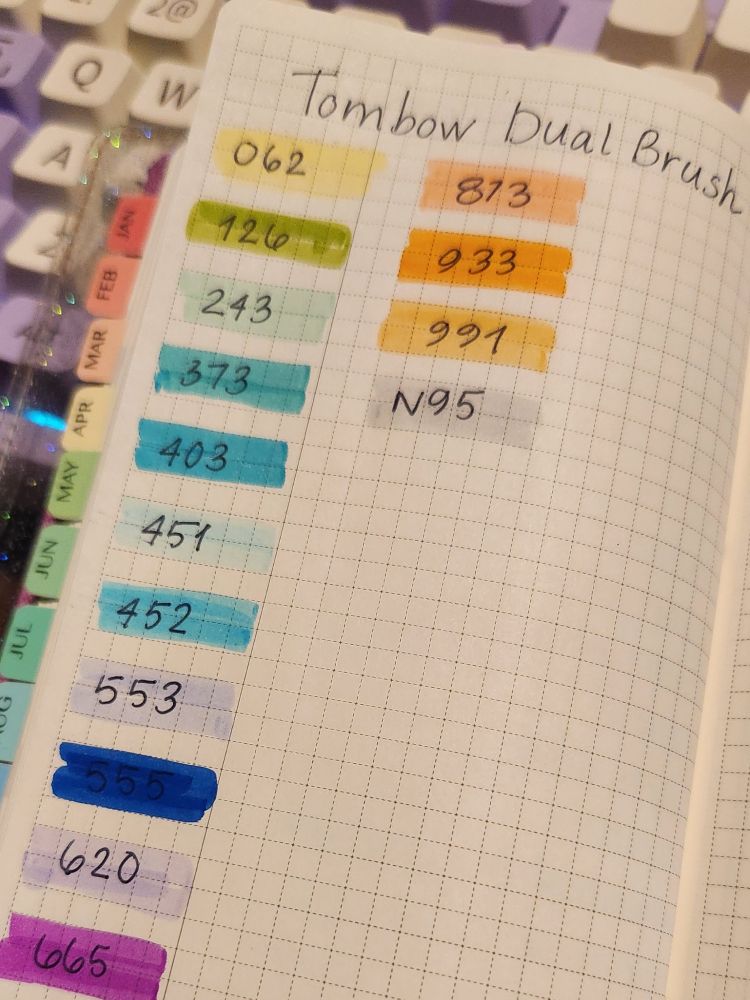 2@
Q
W
A
Tombow Dual Brush
062
126
243
373
403
451
452
553
555
620
665
873
933
991
N95
JAN
FEB
MAR
APR
MAY
JUN
JUL